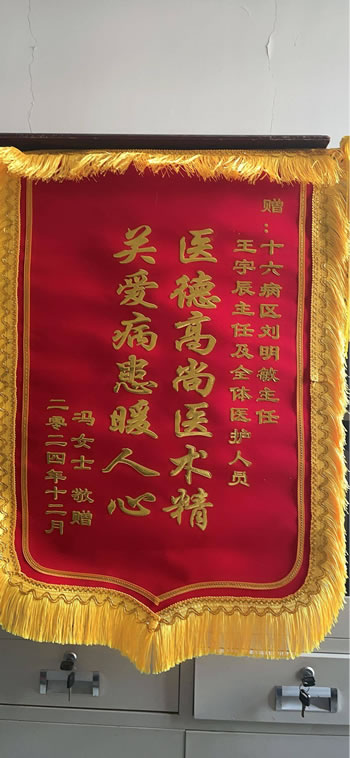 赠：十六病区刘明敏主任
王宇辰主任及全体医护人员
医德高尚医术精
关爱病患暖人心
冯女士 敬赠
二零二四年十二月